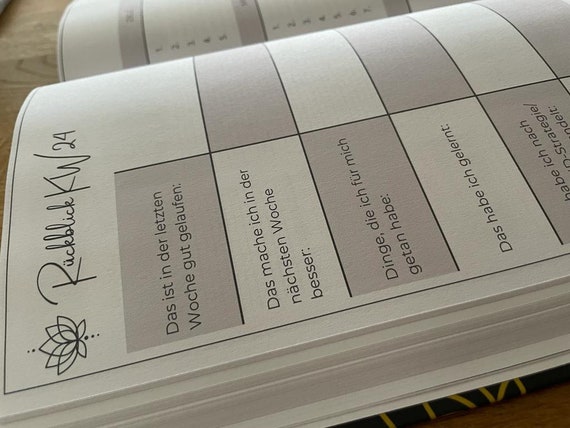 Rückblick KW 24
Das ist in der letzten
Woche gut gelaufen:
Das mache ich in der
nächsten Woche
besser:
Dinge, die ich für mich
getan habe:
Das habe ich gelernt:
habe ich nach
-Strategie/
1.
2.
3.
4.
5.
1.
2.
3.
4.
5.
6.
7.